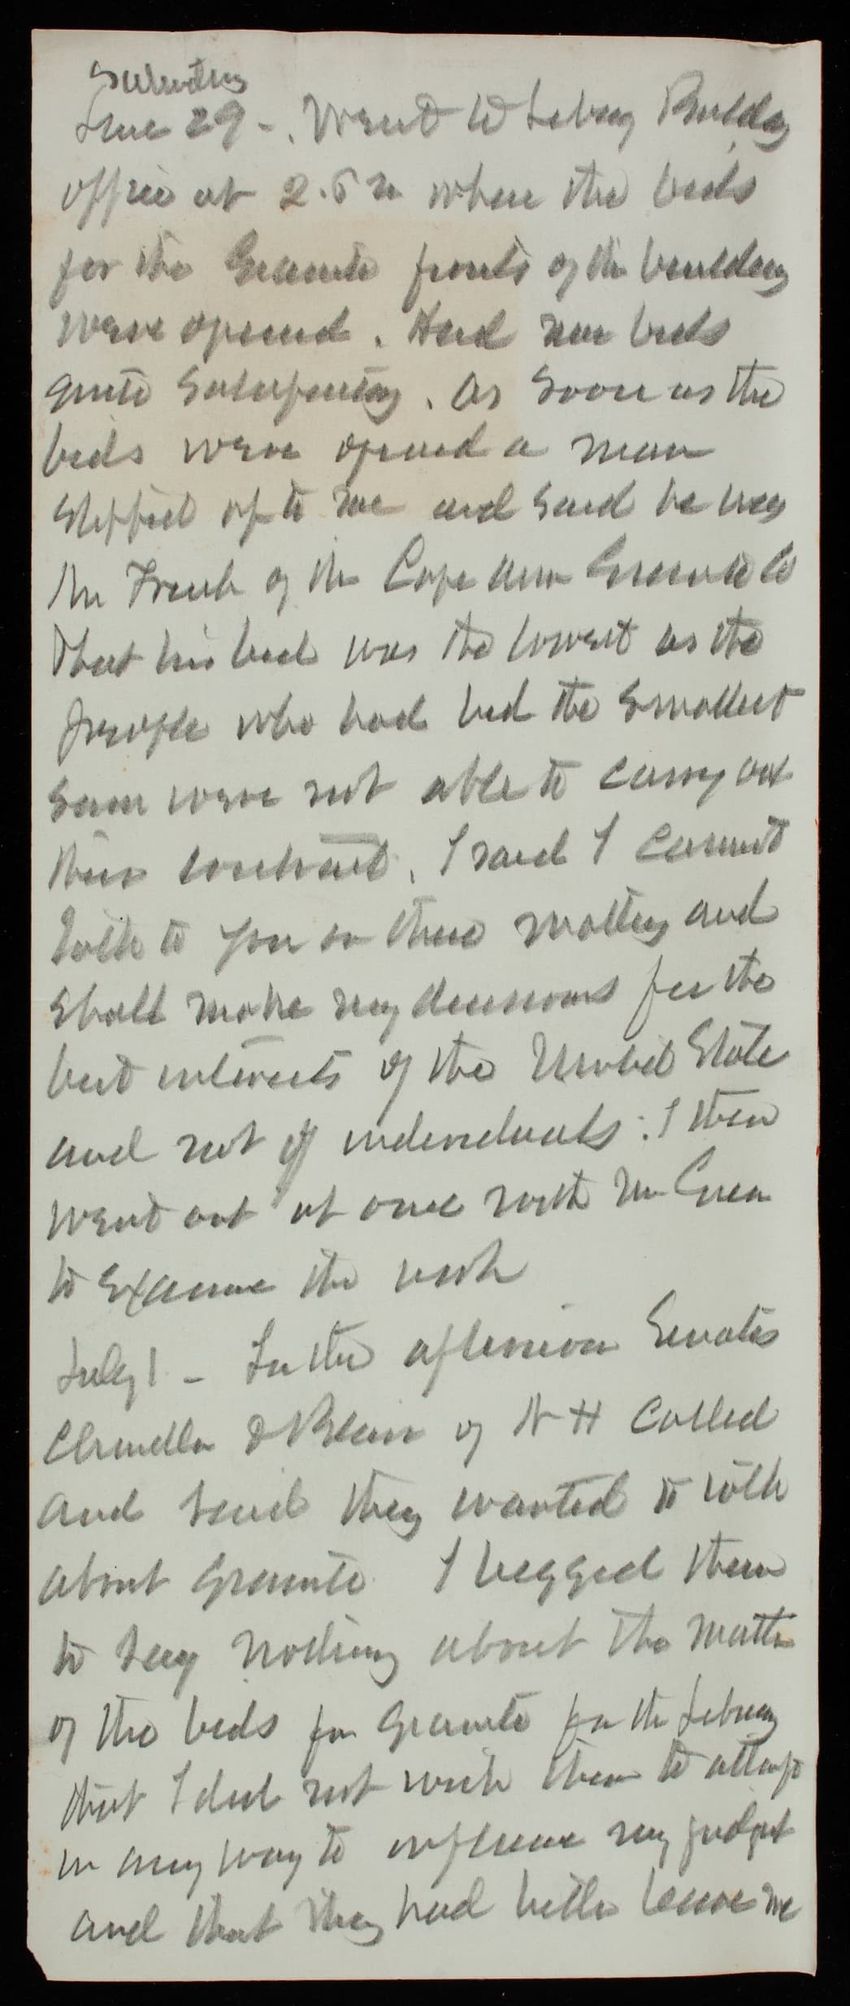 Saturday
June 29 -. Went to Library Building
office at 2. P m where the bids
for the Granite fronts of the building
were opened. Had nine bids
quite satisfactory. As soon as the
bids were opened a man
stepped up to me and said he was
Mr French of the Cape Ann Granite Co
that his bid was the lowest as the
people who had bid the smallest
sum were not able to carry out
their contract. I said I cannot
talk to you on these matters and
shall make my decisions for the
best interests of the United State
and not of individuals: I then
went out at once with Mr Green
to examine the work
July 1 - In the afternoon Senators
Chandler & Blair of N H called
and said they wanted to talk
about granite I begged them
to say nothing about the matter
of the bids for granite for the Library
that I did not wish them to attempt
in any way to influence my judgt
and that they had better leave me